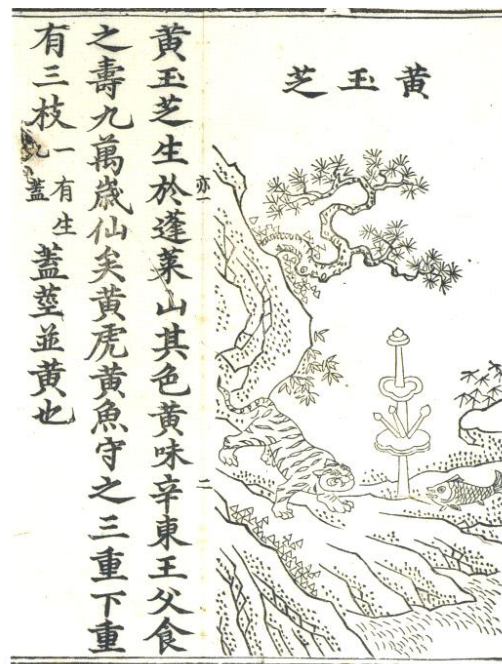 黄玉芝
黄玉芝生於蓬莱山其色黄味辛東王父食
之壽九萬歳仙矣黄虎黄魚守之三重下重
有三枝一有生九蓋蓋莖並黄也
亦一
二